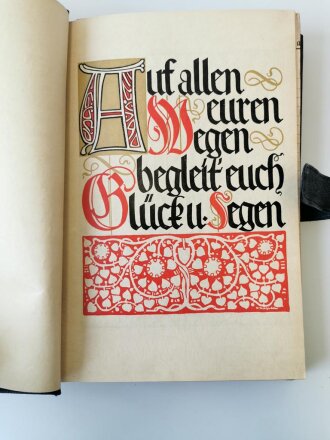 Auf allen
euren
Wegen
begleit' euch
Glück u. Segen